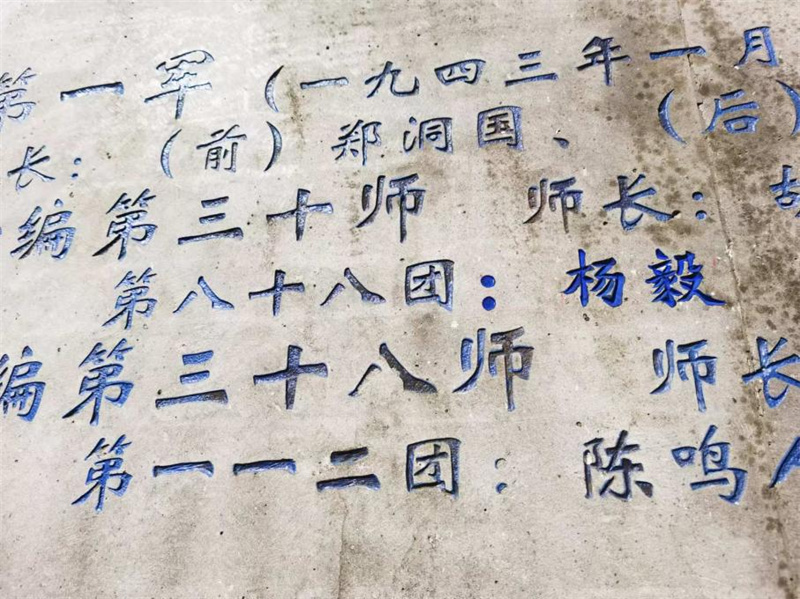 第一军（一九四三年一月
长：（前）郑洞国、（后）
编第三十师 师长：胡
第八十八团：杨毅
编第三十八师 师长
第一一二团：陈鸣人